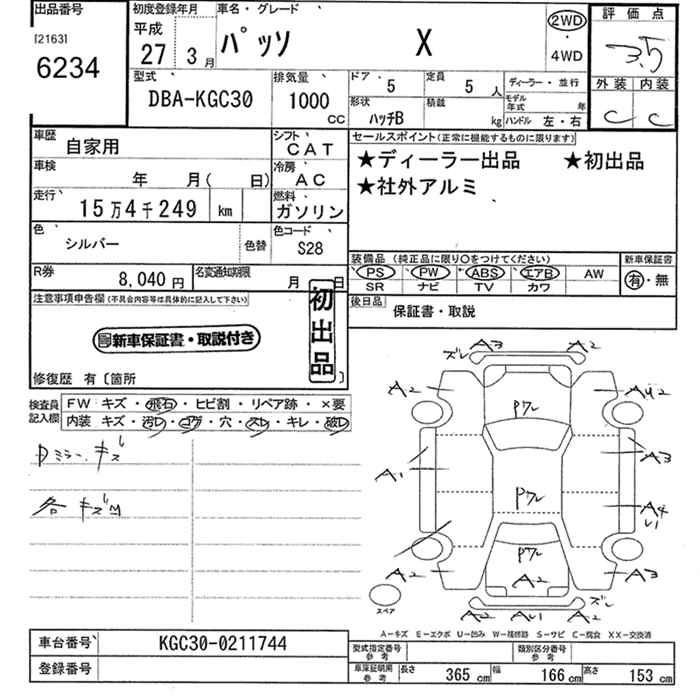 出品番号
[2163]
6234
初度登録年月
平成
27年 3月
車名・グレード
パッソ X
2WD
・
4WD
評価点
3.5
外装 内装
C C
型式
DBA-KGC30
排気量
1000
CC
ドア 5
定員 5人
ディーラー・並行
形状 ハッチB
積載 kg
モデル年式 年
ハンドル 左・右
車歴 自家用
シフト CAT
車検 年 月( 日)
冷房 AC
走行 15万4千249 km
燃料 ガソリン
色 シルバー 色替
色コード S28
R券 8,040円
名変通知期限 月 日
セールスポイント(正常に機能するものに限ります)
★ディーラー出品 ★初出品
★社外アルミ
装備品 (純正品に限り○をつけてください)
新車保証書
PS PW ABS エアB AW
SR ナビ TV カワ
有・無
後日品
保証書・取説
注意事項申告欄(不具合内容等は具体的に記入して下さい)
新車保証書・取説付き
初出品
修復歴 有〔箇所 〕
検査員記入欄
FW キズ・飛石・ヒビ割・リペア跡・×要
内装 キズ・汚レ・コゲ・穴・スレ・キレ・破レ
ミラー、キズ
各キズ
A3 A2
ズレ
A2 AU2
Pワレ
A1 A3
Pワレ
A4
A2 A3
Pワレ
A2
スペア
A2 AU1 A2
ズレ
A－キズ E－エクボ U－凹み W－補修跡 S－サビ C－腐食 XX－交換済
車台番号 KGC30-0211744
登録番号
型式指定番号
参考
類別区分番号
参考
車庫証明用
参考
長さ 365 cm 幅 166 cm 高さ 153 cm